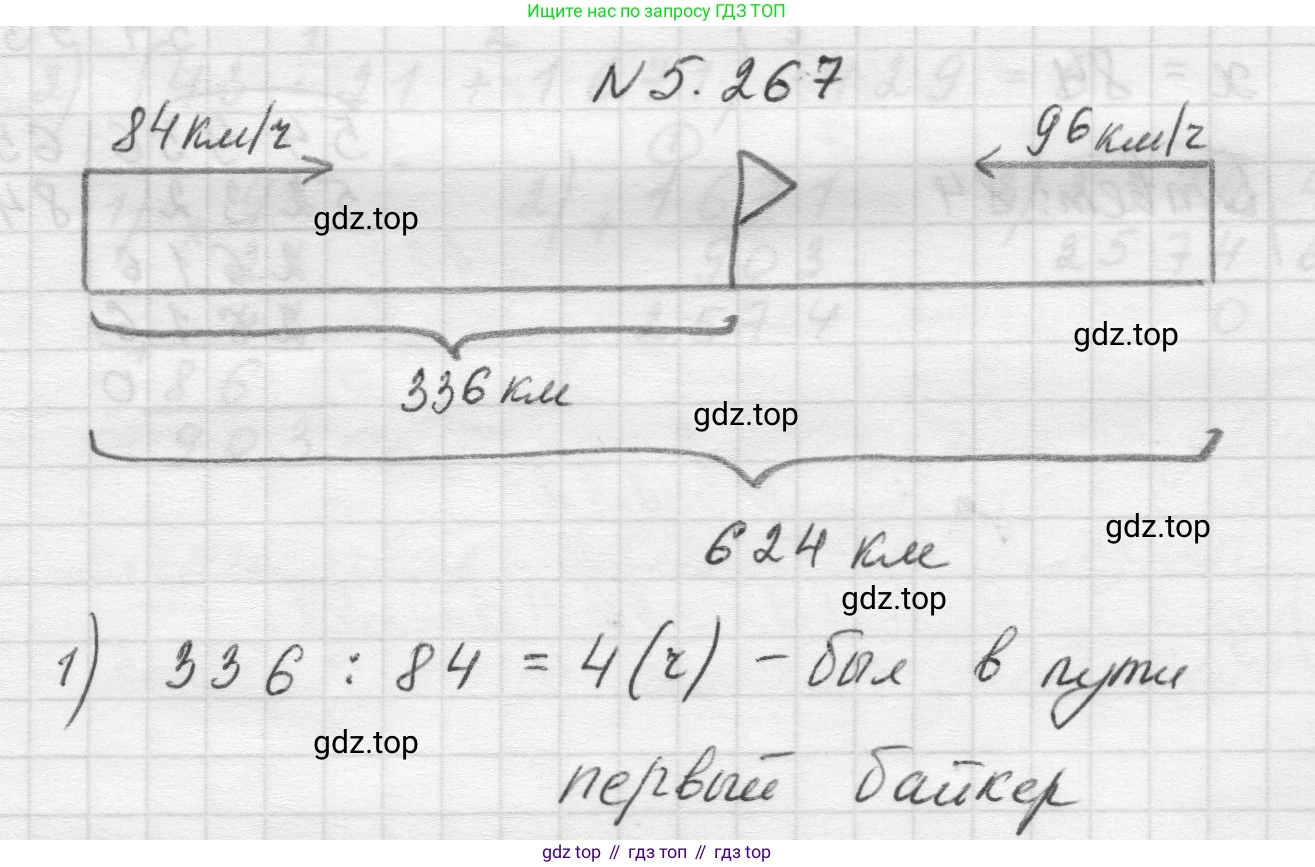 Ищите нас по запросу ГДЗ ТОП
N 5.267
84км/ч
96км/ч
gdz.top
gdz.top
336 км
gdz.top
624 км
gdz.top
gdz.top
1) 336 : 84 = 4(ч) - был в пути
gdz.top
первый байкер
gdz top // гдз топ // гдз top